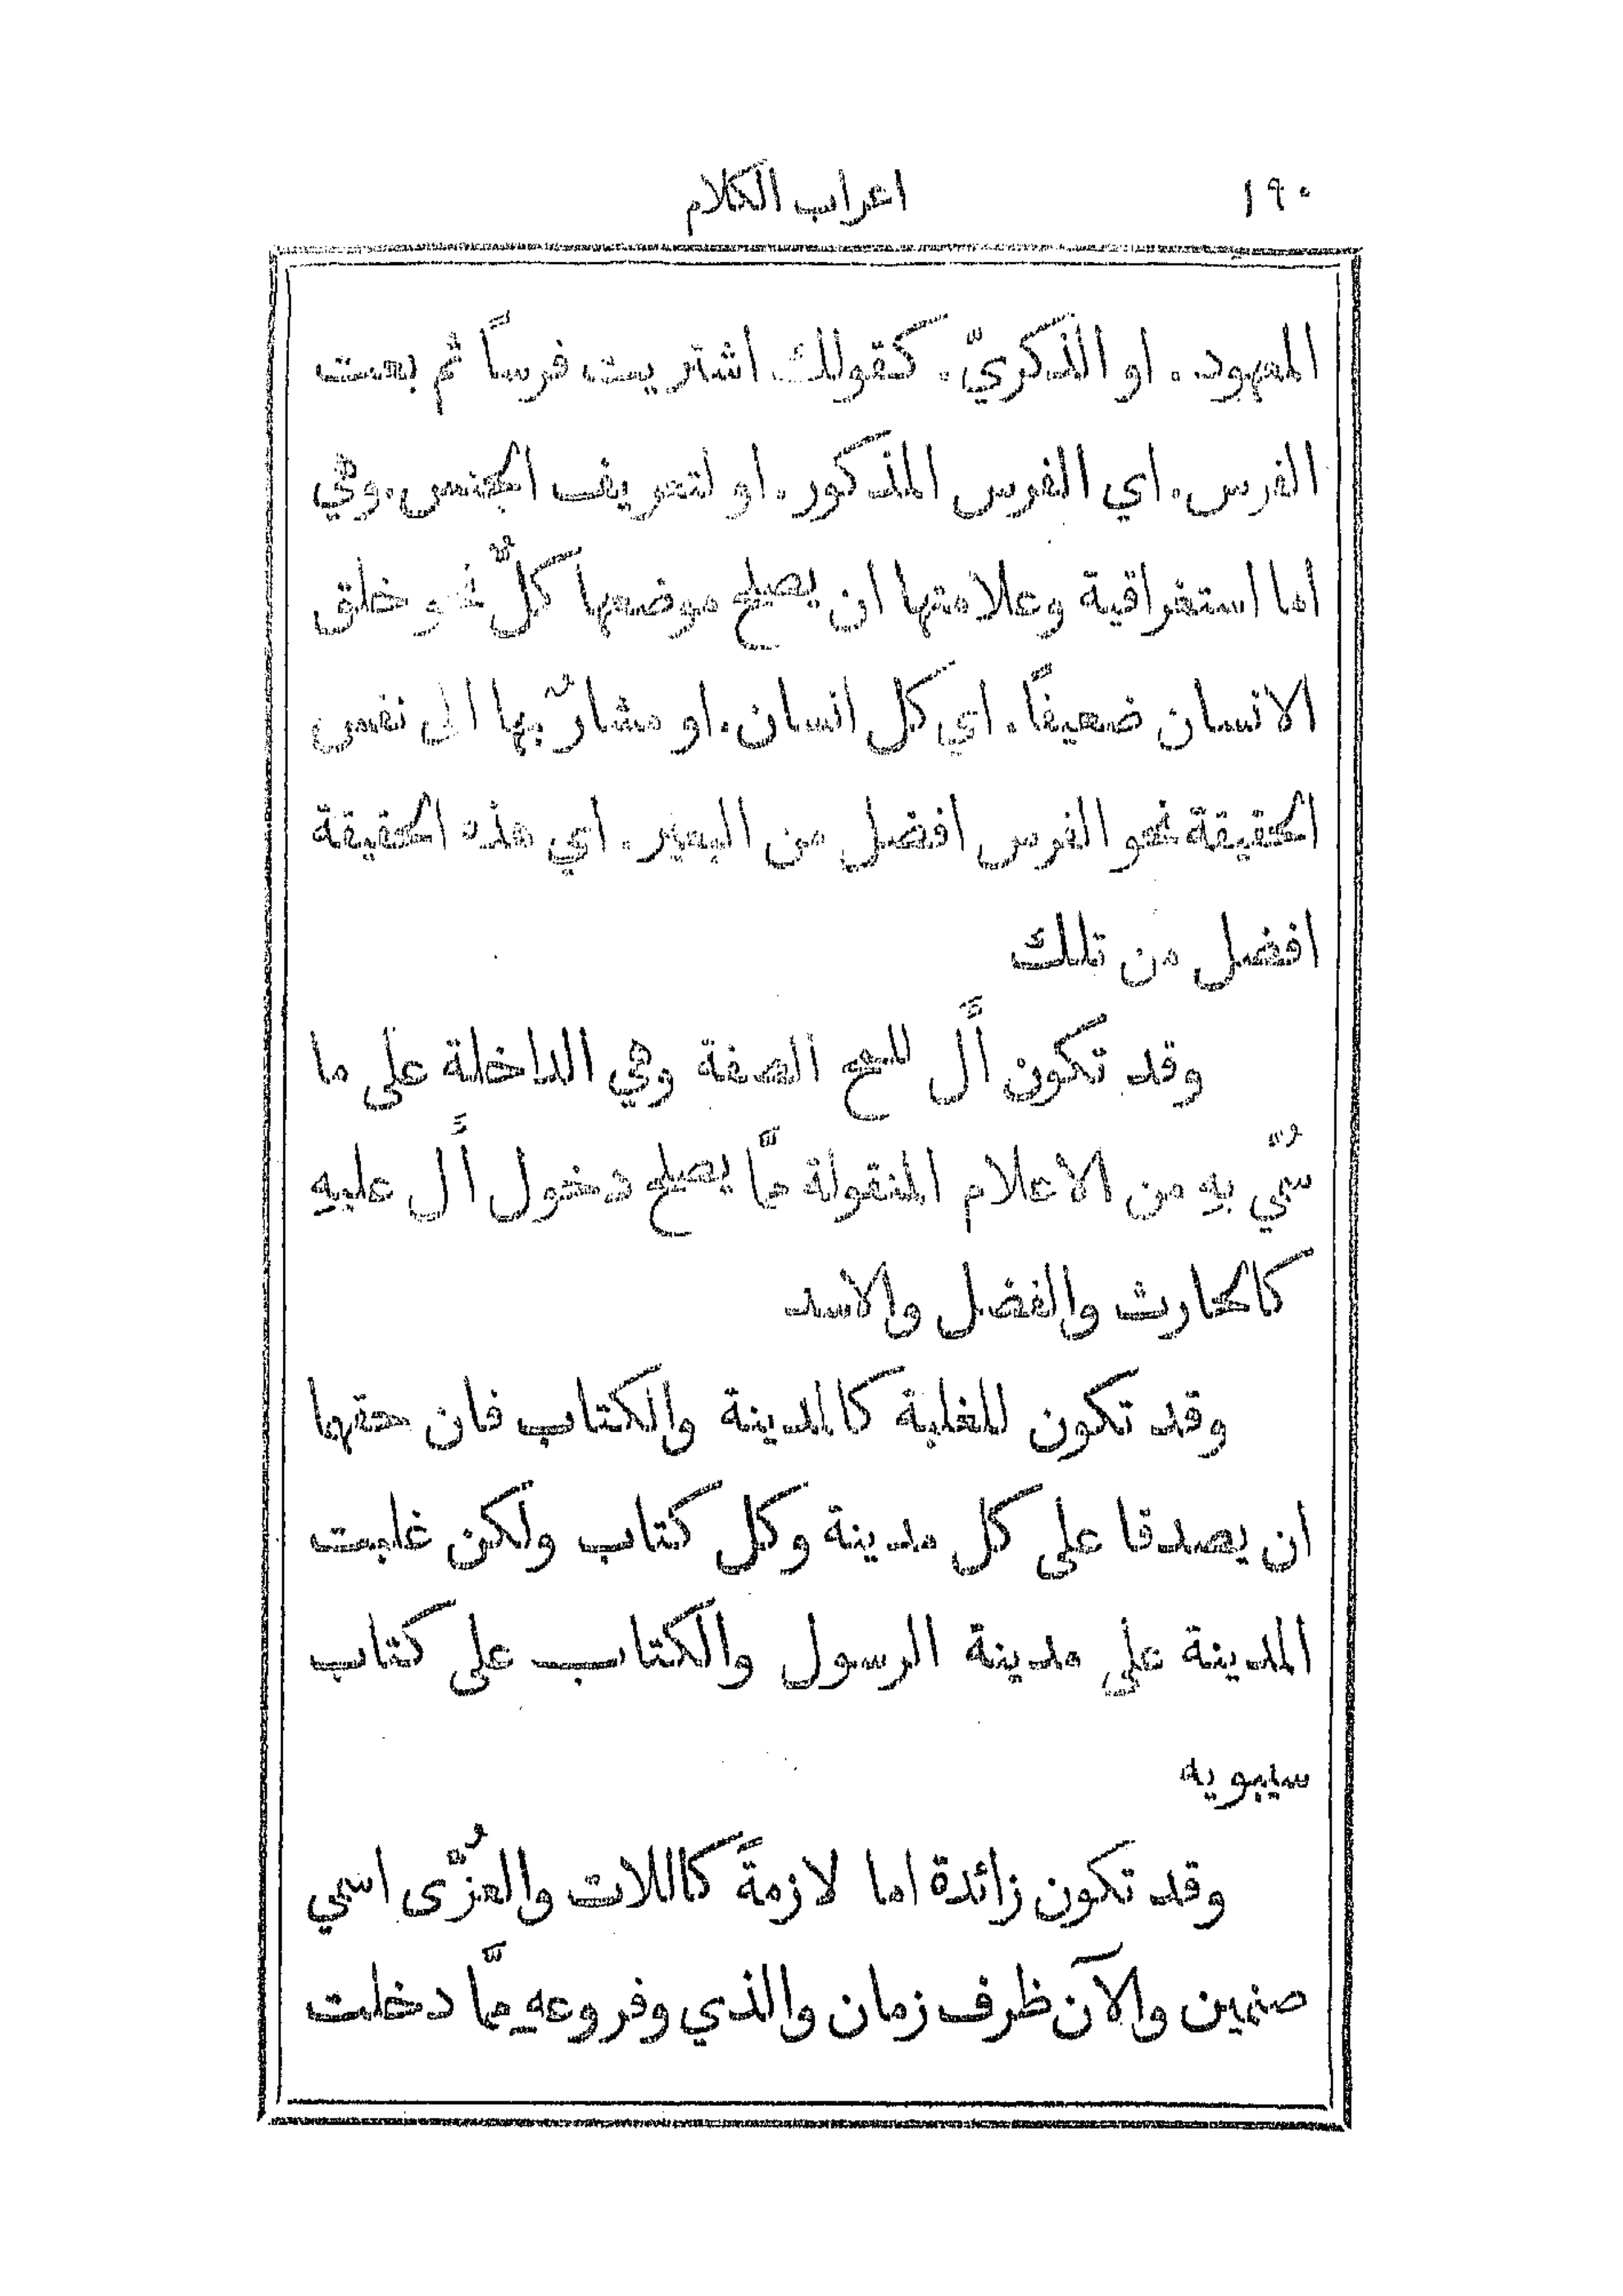 ١٩٠
اعراب الكلام
المعهود. او الذكريّ. كقولك اشتريت فرساً ثم بعت
الفرس. اي الفرس المذكور. او لتعريف الجنس. وهي
اما استغراقية وعلامتها ان يصلح موضعها كلٌّ نحو خلق
الانسان ضعيفاً. اي كل انسان. او مشارٌ بها الى نفس
الحقيقة نحو الفرس افضل من البعير. اي هذه الحقيقة
افضل من تلك
وقد تكون أَل للمح الصفة وهي الداخلة على ما
سُمّي بهِ من الاعلام المنقولة ممَّا يصلح دخول أَل عليهِ
كالحارث والفضل والاسد
وقد تكون للغلبة كالمدينة والكتاب فان حقهما
ان يصدقا على كل مدينة وكل كتاب ولكن غلبت
المدينة على مدينة الرسول والكتاب على كتاب
سيبويه
وقد تكون زائدة اما لازمةً كاللات والعُزَّى اسمي
صنمين والآن ظرف زمان والذي وفروعهِ ممَّا دخلت